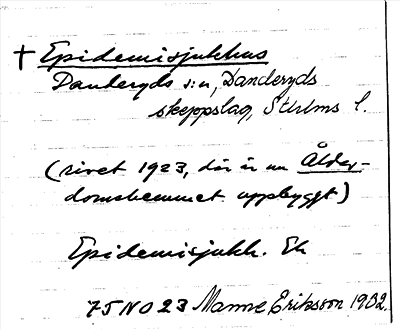 † Epidemisjukhus
Danderyds s:n, Danderyds
skeppslag, Sthlms l.
(rivet 1923, där är nu Ålder-
domshemmet uppbyggt)
Epidemisjukh. Eh
75 NO 23 Manne Eriksson 1932.